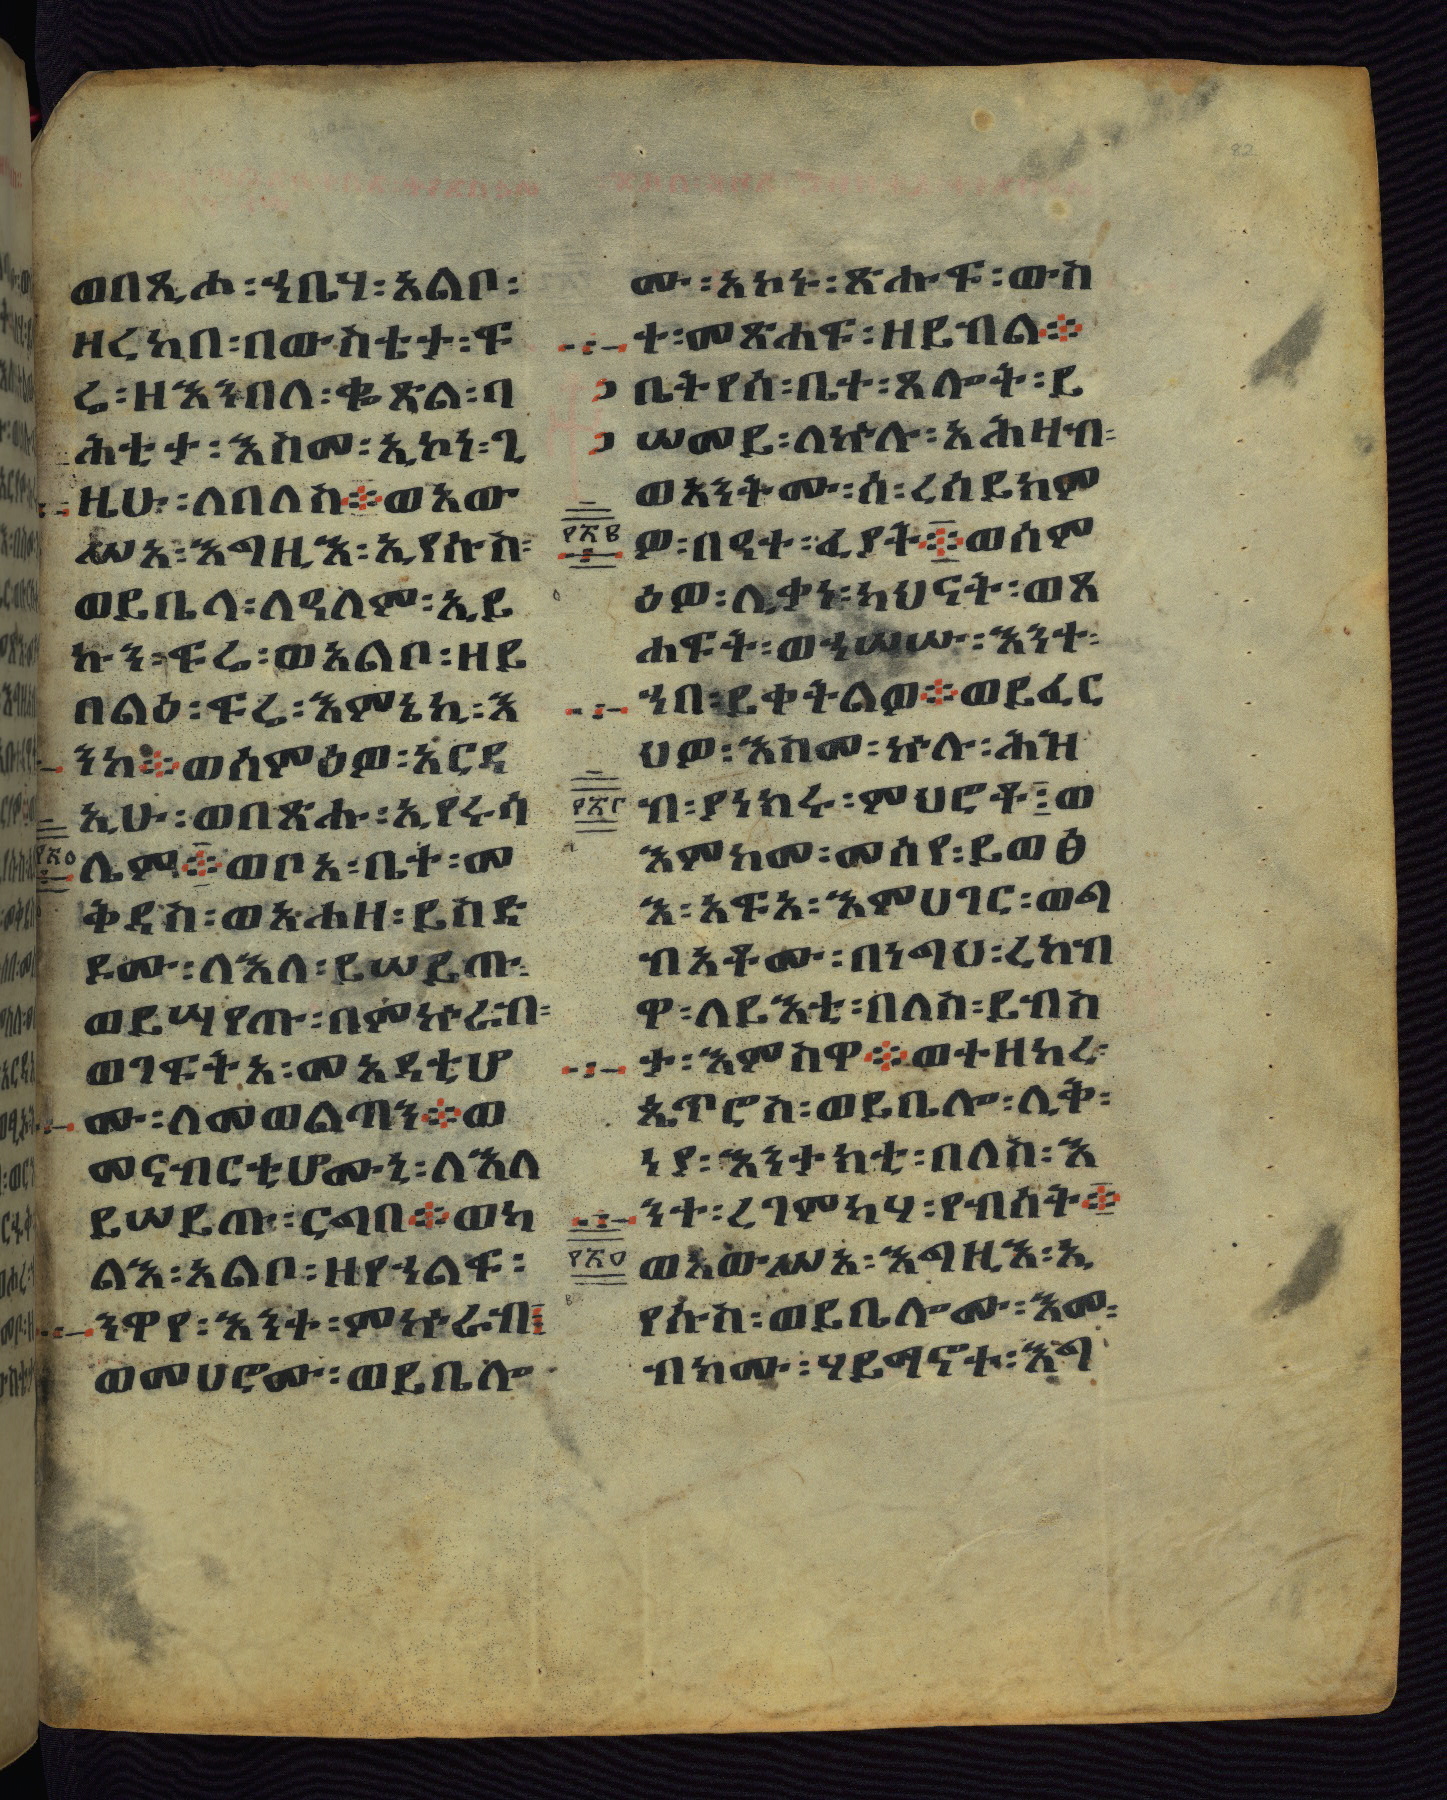 ወበጺሖ፡ኀቤሃ፡አልቦ፡
ዘረካበ፡በውስቴታ፡ፍ
ሬ፡ዘእንበለ፡ቈጽል፡ባ
ሕቲታ፡እስመ፡ኢኮነ፡ጊ
ዜሁ፡ለበለስ፨ወአው
ሥአ፡እግዚእ፡ኢየሱስ፡
ወይቤላ፡ለዓለም፡ኢይ
ኩን፡ፍሬ፡ወአልቦ፡ዘይ
በልዕ፡ፍሬ፡እምኔኪ፡እ
ንከ፨ወሰምዕዎ፡አርዳ
ኢሁ፡ወበጽሑ፡ኢየሩሳ
ሌም፨ወቦአ፡ቤተ፡መ
ቅዳስ፡ወአሐዘ፡ይስድ
ዶሙ፡ለእለ፡ይሠይጡ፡
ወይሣየጡ፡በምኵራብ፡
ወገፍትአ፡መአዳቲሆ
ሙ፡ለመወልጣን፨ወ
መናብርቲሆሙኒ፡ለእለ
ይሠይጡ፡ርግበ፨ወከ
ልአ፡አልቦ፡ዘየኀልፍ፡
ንዋየ፡እንተ፡ምኵራብ፨
ወመሀሮሙ፡ወይቤሎ
ሙ፡አኮኑ፡ጽሑፍ፡ውስ
ተ፡መጽሐፍ፡ዘይብል፨
ቤትየሰ፡ቤተ፡ጸሎት፡ይ
ሠመይ፡ለኵሉ፡አሕዛብ፡
ወአንትሙ፡ሰ፡ረሰይክም
ዎ፡በዓተ፡ፈያት፨ወሰም
ዕዎ፡ሊቃነ፡ካህናት፡ወጸ
ሐፍት፡ወኀሠሡ፡እንተ፡
ኀበ፡ይቀትልዎ፨ወይፈር
ህዎ፡እስመ፡ኵሉ፡ሕዝ
ብ፡ያነክሩ፡ምህሮቶ፨ወ
እምከመ፡መስየ፡ይወፅ
እ፡አፍአ፡እምሀገር፡ወግ
ብአቶሙ፡በነግህ፡ረከብ
ዋ፡ለይእቲ፡በለስ፡ይብስ
ታ፡እምስዋ፨ወተዘከረ፡
ጴጥሮስ፡ወይቤሎ፡ሊቅ፡
ነያ፡እንታክቲ፡በለስ፡እ
ንተ፡ረገምካሃ፡የብሰት፨
ወአውሥአ፡እግዚእ፡ኢ
የሱስ፡ወይቤሎሙ፡እመ፡
ብክሙ፡ሃይማኖተ፡እግ